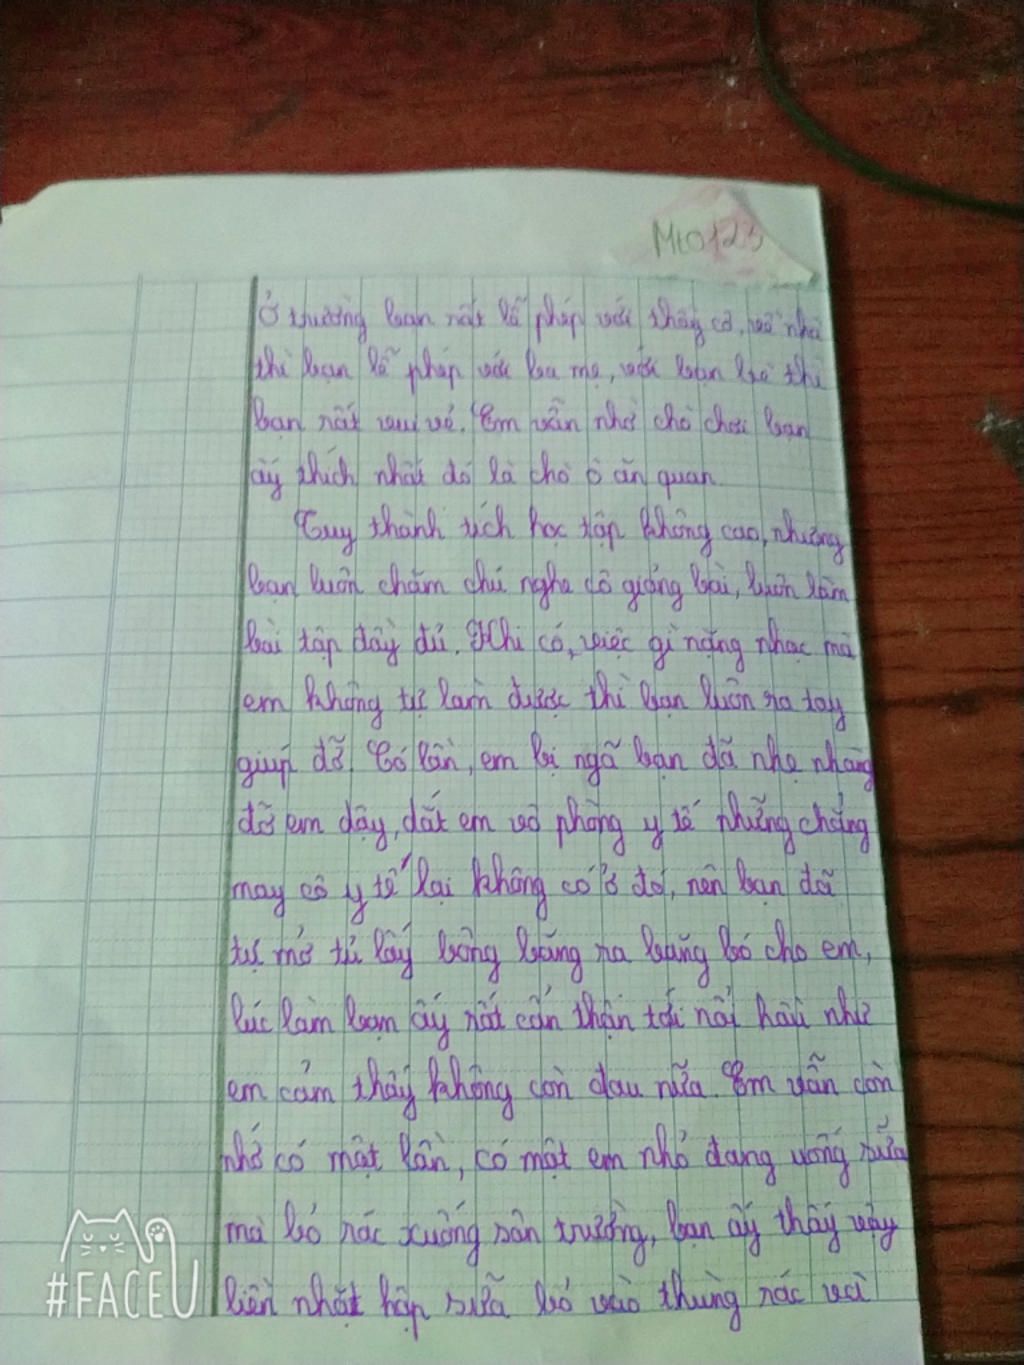 Mt0123
Ở thường bạn rất lễ phép với thầy cô, về nhà
thì bạn lễ phép với ba mẹ, với bạn bè thì
bạn rất vui vẻ. Em vẫn nhớ chò chơi bạn
ấy thích nhất đó là chò ô ăn quan
Tuy thành tích học tập không cao, nhưng
bạn luôn chăm chú nghe cô giảng bài, luôn làm
bài tập đầy đủ. Khi có, việc gì nặng nhọc mà
em không tự làm được thì bạn luôn ra tay
giúp đỡ. Có lần, em bị ngã bạn đã nhẹ nhàng
đỡ em dậy, dắt em vô phòng y tế những chẳng
may cô y tế lại không có ở đó, nên bạn đã
tự mở tủ lấy bông băng ra băng bó cho em,
lúc làm bạn ấy rất cẩn thận tới nổi hầu như
em cảm thấy không còn đau nữa. Em vẫn còn
nhớ có một lần, có một em nhỏ đang uống sữa
mà bỏ rác xuống sân trường, bạn ấy thấy vậy
liền nhặt hộp sữa bỏ vào thùng rác và
#FACEU